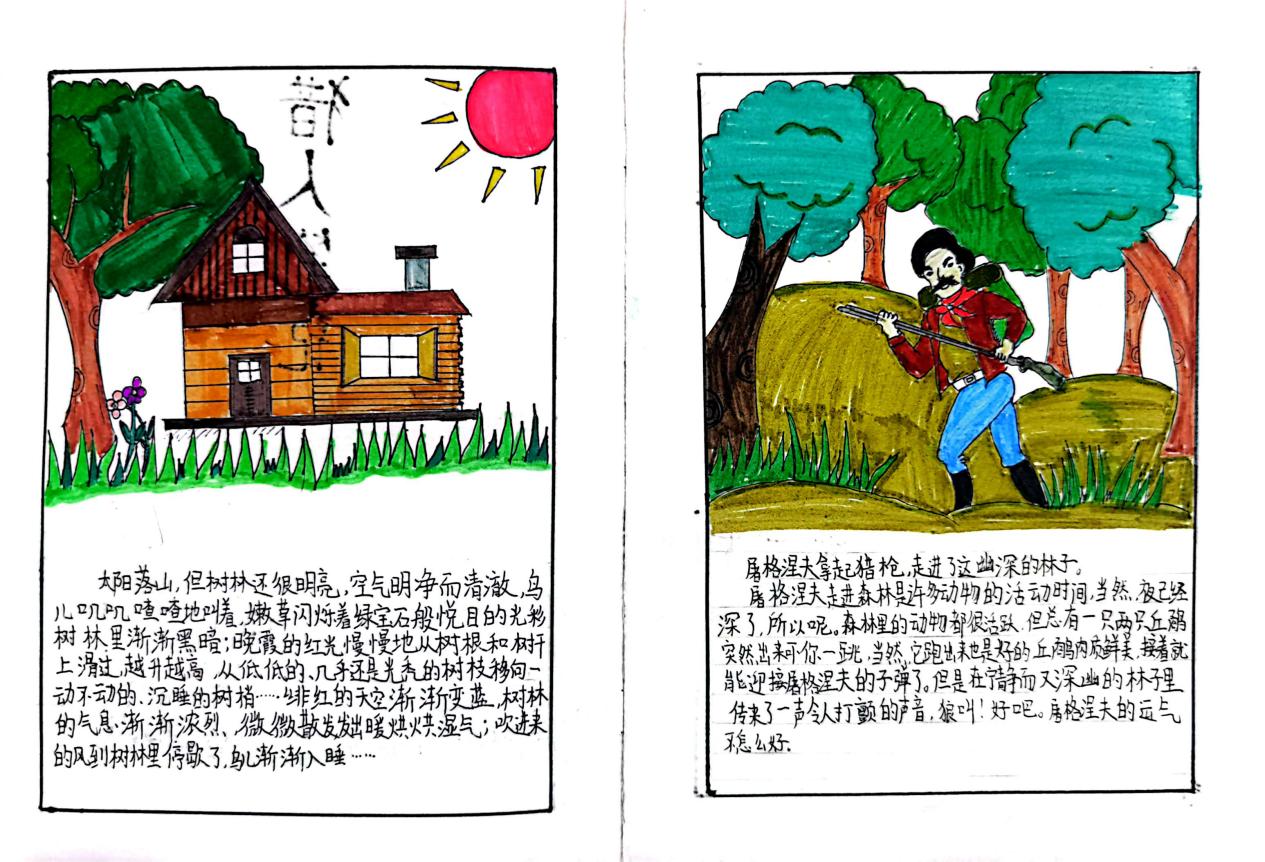 猎人
太阳落山，但树林还很明亮，空气明净而清澈，鸟
儿叽叽喳喳地叫着，嫩草闪烁着绿宝石般悦目的光彩
树林里渐渐黑暗；晚霞的红光慢慢地从树根和树扞
上滑过，越升越高，从低低的、几乎还是光秃的树枝移向一
动不动的、沉睡的树梢……绯红的天空渐渐变蓝，树林
的气息渐渐浓烈、微微散发发出暖烘烘湿气；吹进来
的风到树林里停歇了，鸟儿渐渐入睡……
屠格涅夫拿起猎枪，走进了这幽深的林子。
屠格涅夫走进森林是许多动物的活动时间，当然，夜已经
深了，所以呢。森林里的动物都很活跃，但总有一只两只丘鹬
突然出来吓你一跳，当然，它跑出来也是好的丘鹬肉质鲜美，接着就
能迎接屠格涅夫的子弹了。但是在宁静而又深幽的林子里
传来了一声令人打颤的声音，狼叫！好吧。屠格涅夫的运气
不怎么好。